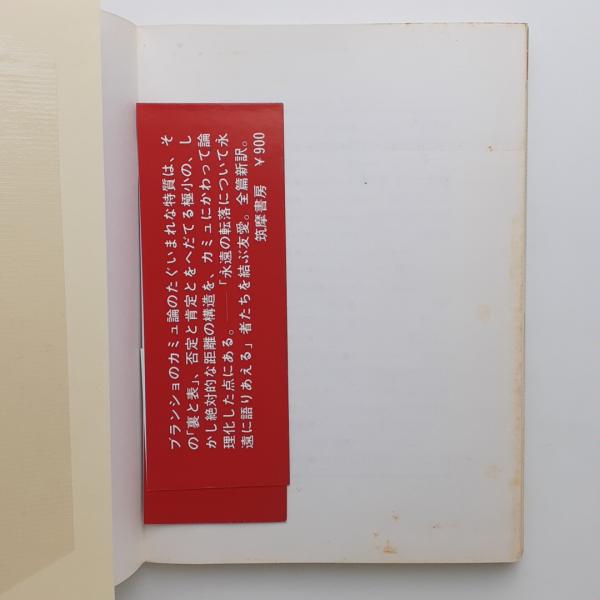 ブランショのカミュ論のたぐいまれな特質は、そ
の「裏と表」、否定と肯定とをへだてる極小の、し
かし絶対的な距離の構造を、カミュにかわって論
理化した点にある。――「永遠の転落について永
遠に語りあえる」者たちを結ぶ友愛。全篇新訳。
筑摩書房 ￥900